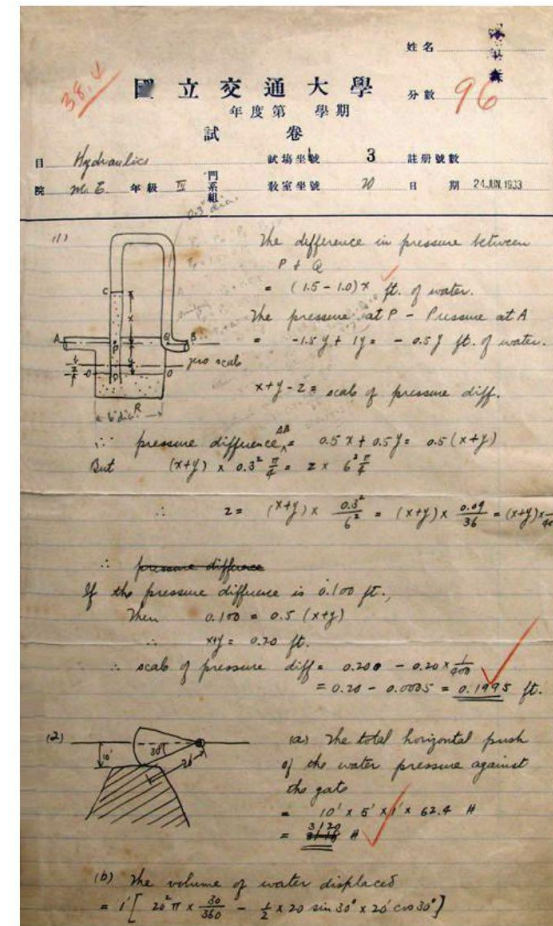 姓名
38.4
國立交通大學
分數 96
年度第 學期
試卷
目 Hydraulics 試場坐號 3 註册號數
院 M.E. 年級 IV 門系組 教室坐號 20 日期 24 JUN. 1933
(1)
The difference in pressure between
P & Q
= (1.5 - 1.0) x ft. of water.
The pressure at P - Pressure at A
= -1.5y + 1y = -0.5y ft. of water.
x+y-z = scale of pressure diff.
C
A
P
Q
B
x
y
zero scale
O
O
R
6" dia.
∴ pressure difference AB = 0.5x + 0.5y = 0.5(x+y)
But (x+y) × 0.3² π/4 = z × 6² π/4
∴ z = (x+y) × 0.3²/6² = (x+y) × 0.09/36 = (x+y)
∴ pressure difference
If the pressure difference is 0.100 ft.,
Then 0.100 = 0.5 (x+y)
∴ x+y = 0.20 ft.
∴ scale of pressure diff = 0.200 - 0.20 × 1/400
= 0.20 - 0.0005 = 0.1995 ft.
(2)
10'
30°
20'
(a) The total horizontal push
of the water pressure against
the gate
= 10' × 5' × 1' × 62.4 #
= 3120 #
(b) The volume of water displaced
= 1' [ 20² π × 30/360 - 1/2 × 20 sin 30° × 20' cos 30° ]